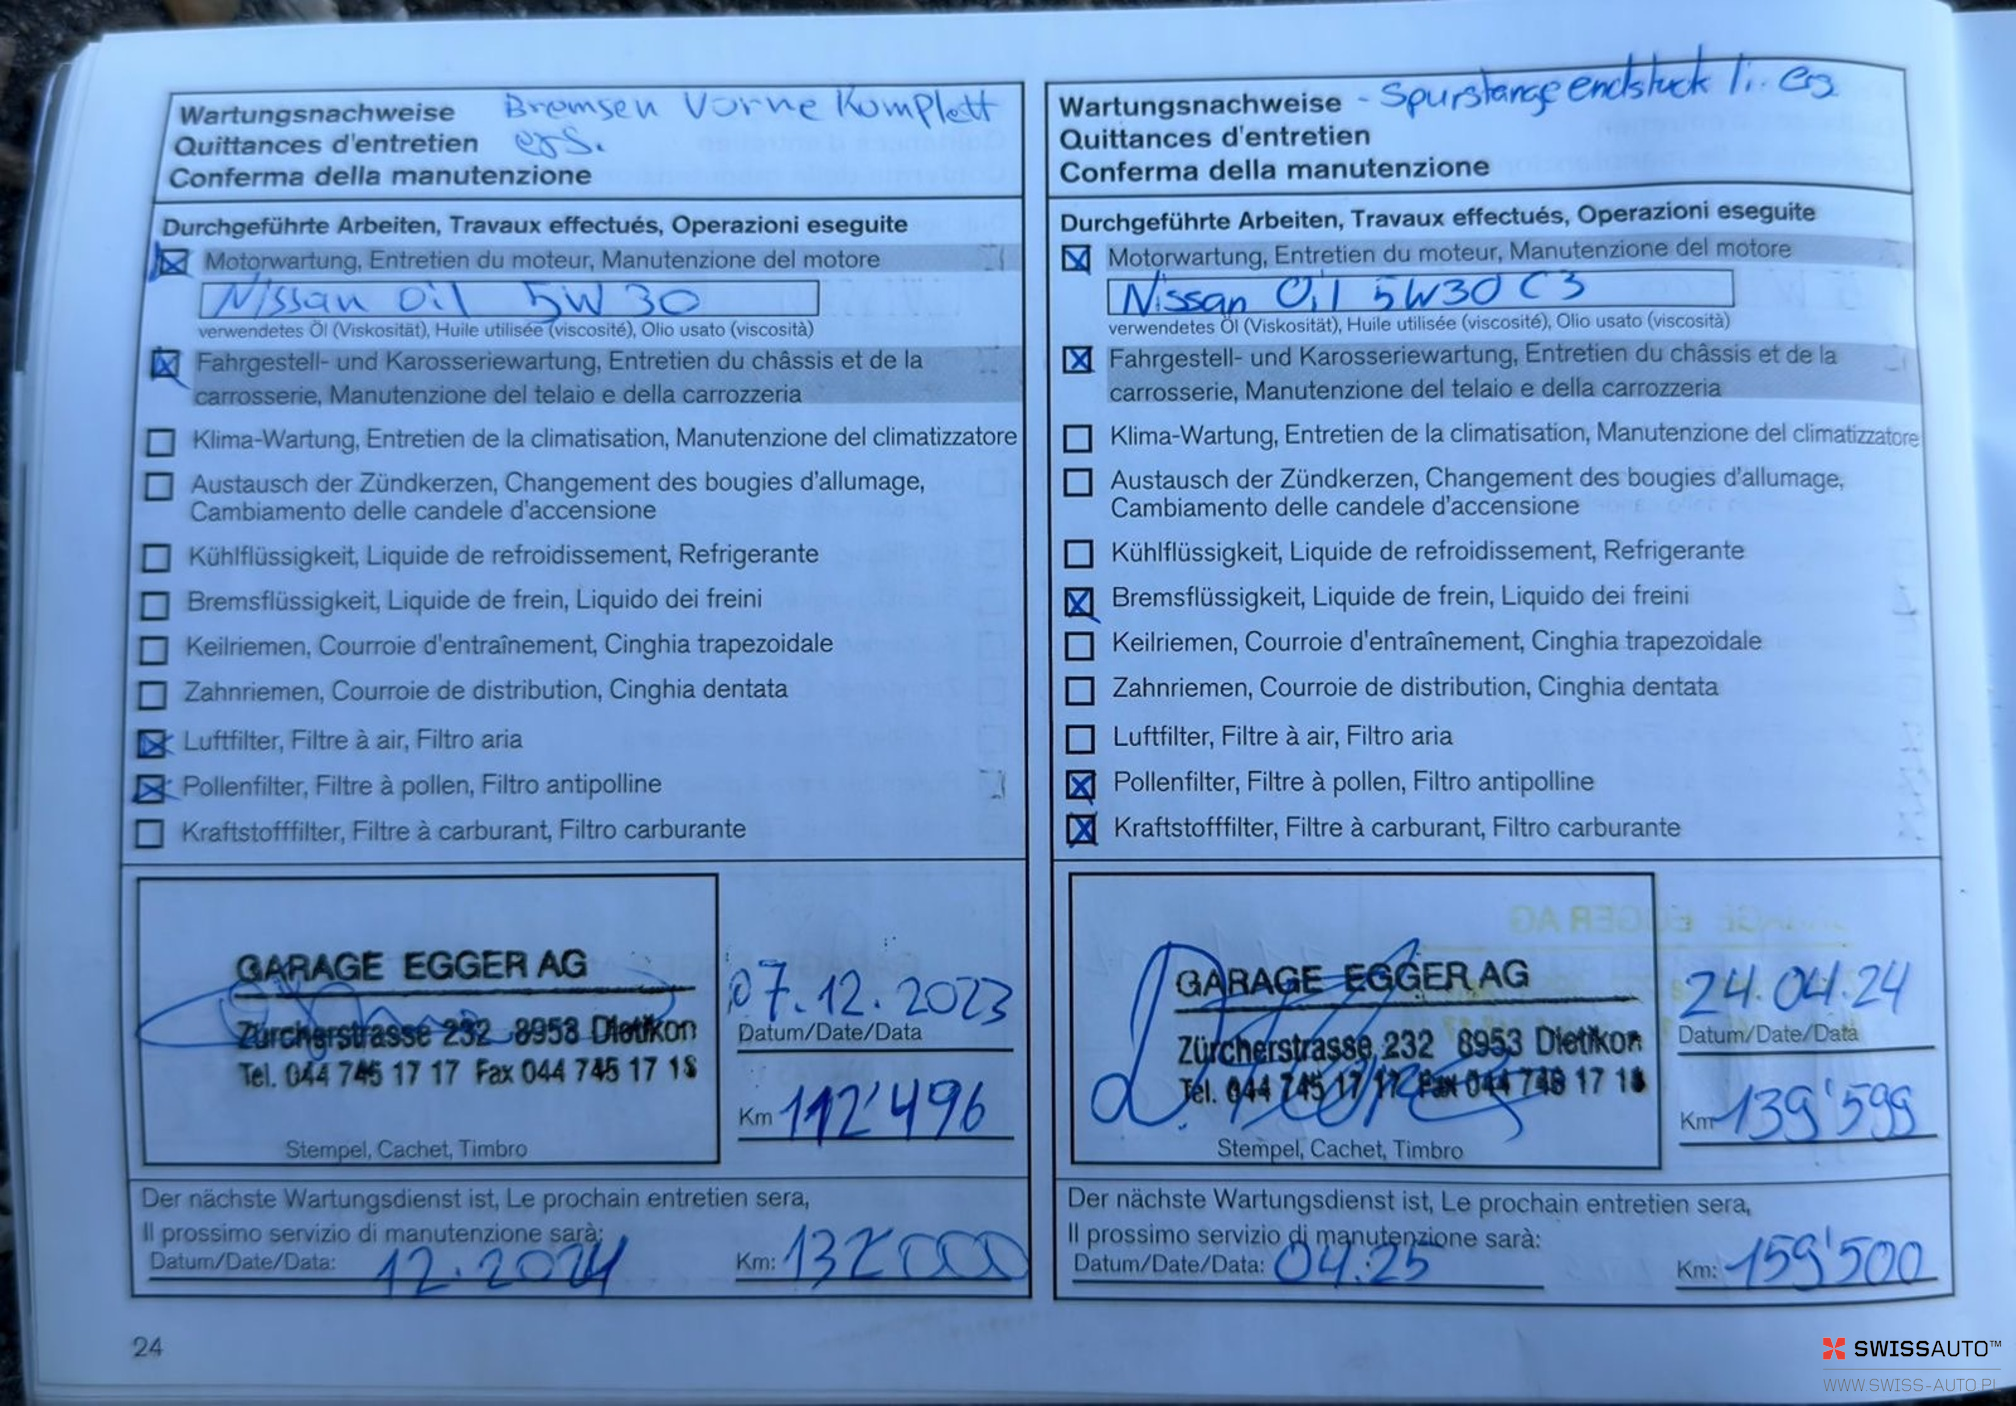 Wartungsnachweise Bremsen Vorne Komplett
Quittances d'entretien ers.
Conferma della manutenzione
Durchgeführte Arbeiten, Travaux effectués, Operazioni eseguite
Motorwartung, Entretien du moteur, Manutenzione del motore
Nissan Oil 5W30
verwendetes Öl (Viskosität), Huile utilisée (viscosité), Olio usato (viscosità)
Fahrgestell- und Karosseriewartung, Entretien du châssis et de la
carrosserie, Manutenzione del telaio e della carrozzeria
Klima-Wartung, Entretien de la climatisation, Manutenzione del climatizzatore
Austausch der Zündkerzen, Changement des bougies d'allumage,
Cambiamento delle candele d'accensione
Kühlflüssigkeit, Liquide de refroidissement, Refrigerante
Bremsflüssigkeit, Liquide de frein, Liquido dei freini
Keilriemen, Courroie d'entraînement, Cinghia trapezoidale
Zahnriemen, Courroie de distribution, Cinghia dentata
Luftfilter, Filtre à air, Filtro aria
Pollenfilter, Filtre à pollen, Filtro antipolline
Kraftstofffilter, Filtre à carburant, Filtro carburante
GARAGE EGGER AG
Zürcherstrasse 232 8953 Dietikon
Tel. 044 745 17 17 Fax 044 745 17 18
Stempel, Cachet, Timbro
07.12.2023
Datum/Date/Data
Km 112'496
Der nächste Wartungsdienst ist, Le prochain entretien sera,
Il prossimo servizio di manutenzione sarà:
Datum/Date/Data: 12.2024 Km: 132000
24
Wartungsnachweise - Spurstangeendstuck li. ers.
Quittances d'entretien
Conferma della manutenzione
Durchgeführte Arbeiten, Travaux effectués, Operazioni eseguite
Motorwartung, Entretien du moteur, Manutenzione del motore
Nissan Oil 5W30 C3
verwendetes Öl (Viskosität), Huile utilisée (viscosité), Olio usato (viscosità)
Fahrgestell- und Karosseriewartung, Entretien du châssis et de la
carrosserie, Manutenzione del telaio e della carrozzeria
Klima-Wartung, Entretien de la climatisation, Manutenzione del climatizzatore
Austausch der Zündkerzen, Changement des bougies d'allumage,
Cambiamento delle candele d'accensione
Kühlflüssigkeit, Liquide de refroidissement, Refrigerante
Bremsflüssigkeit, Liquide de frein, Liquido dei freini
Keilriemen, Courroie d'entraînement, Cinghia trapezoidale
Zahnriemen, Courroie de distribution, Cinghia dentata
Luftfilter, Filtre à air, Filtro aria
Pollenfilter, Filtre à pollen, Filtro antipolline
Kraftstofffilter, Filtre à carburant, Filtro carburante
GARAGE EGGER AG
Zürcherstrasse 232 8953 Dietikon
Tel. 044 745 17 17 Fax 044 745 17 18
Stempel, Cachet, Timbro
24.04.24
Datum/Date/Data
Km 139'599
Der nächste Wartungsdienst ist, Le prochain entretien sera,
Il prossimo servizio di manutenzione sarà:
Datum/Date/Data: 04.25 Km: 159'500
SWISSAUTO™
WWW.SWISS-AUTO.PL